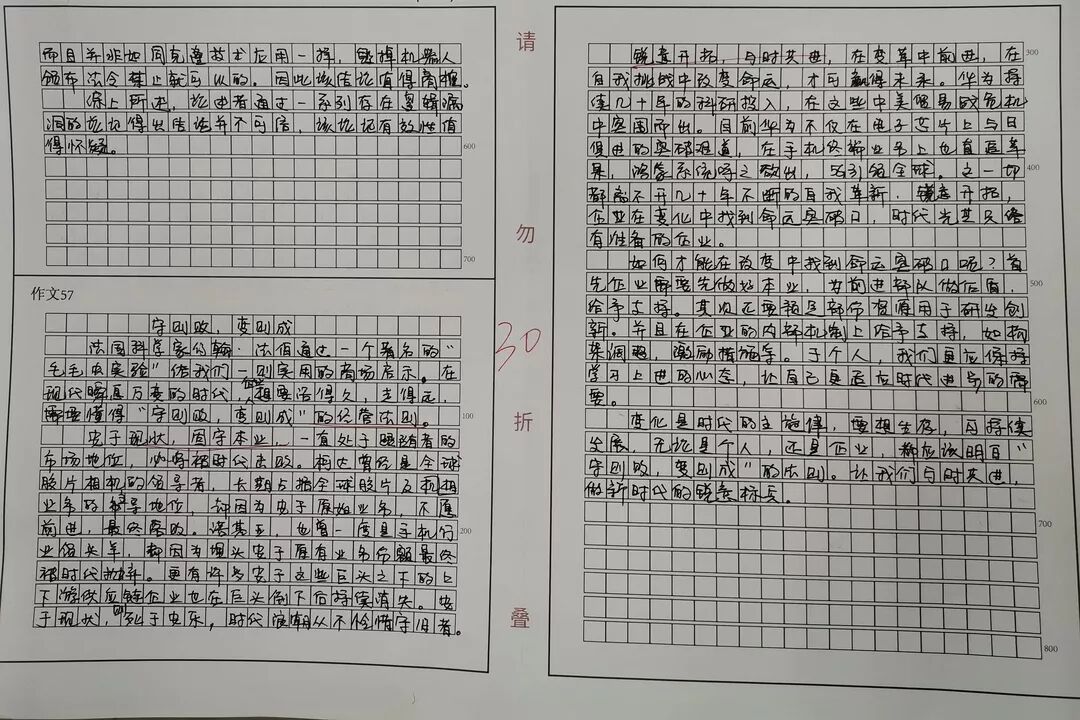 而且并非如同克隆技术应用一样,能掉机器人
颁布法令禁止就可以的。因此该结论值得商榷。
综上所述,论述者通过一系列存在逻辑漏
洞的论证得出结论并不可信,该论证有效性值
得怀疑。
600
700
作文57
守则败,变则成
法国科学家约翰·法伯通过一个著名的“
毛毛虫实验”给我们一则实用的商场启示。在
现代瞬息万变的时代,企业想要活得久,走得远,
需要懂得“守则败,变则成”的经营法则。
100
安于现状,固守本业,一直处于跟随者的
市场地位,必将被时代击败。柯达曾经是全球
胶片相机的领导者,长期占据全球胶片及相
业务的领导地位,却因为安于原始业务,不愿
前进,最终落败。诺基亚,也曾一度是手机行
200
业领头羊,都因为埋头安于原有业务份额最终
被时代抛弃。更有许多安于这些巨头之下的上
下游供应链企业也在巨头倒下后持续消失。安
于现状,则死于安乐,时代浪潮从不怜惜守旧者。
请
勿
折
叠
30
锐意开拓,与时共进,在变革中前进,在
300
自我挑战中改变命运,才可赢得未来。华为持
续几十年的科研投入,在这些中美贸易战危机
中突围而出。目前华为不仅在电子芯片上与日
俱进的突破报道,在手机终端业务上也直逼苹
果,鸿蒙系统呼之欲出,引领全球。这一切
400
都离不开几十年不断的自我革新,锐意开拓,
企业在变化中找到命运突破口,时代光芒只给
有准备的企业。
如何才能在改变中找到命运突破口呢?首
先企业需要先做好本业,为前进部队做估盾,
500
给予支持。其次还要额定部份资源用于研发创
新。并且在企业的内部机制上给予支持,如构
架调整,激励措施等。于个人,我们更应保持
学习上进的心态,让自己更适应时代进步的需
要。
600
变化是时代的主旋律,要想生存,可持续
发展,无论是个人,还是企业,都应该明白“
守则败,变则成”的法则。让我们与时共进,
做新时代的锐意标兵。
700
800